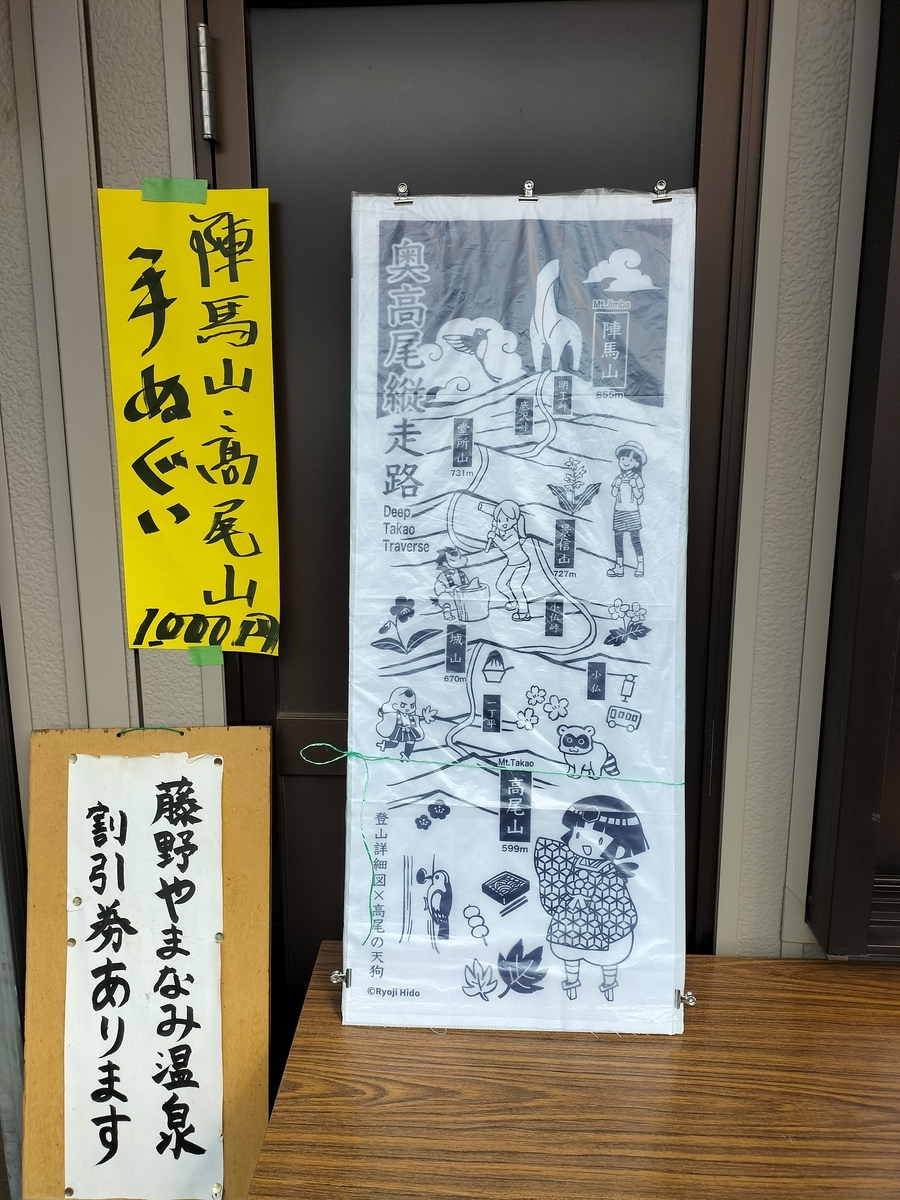 陣馬山、高尾山
手ぬぐい
1,000円
藤野やまなみ温泉
割引券あります
奥高尾縦走路
Deep
Takao
Traverse
Mt.Jimba
陣馬山
855m
明王峠
底沢峠
堂所山
731m
景信山
727m
小仏峠
城山
670m
小仏
一丁平
Mt.Takao
高尾山
599m
登山詳細図×高尾の天狗
©Ryoji Hido